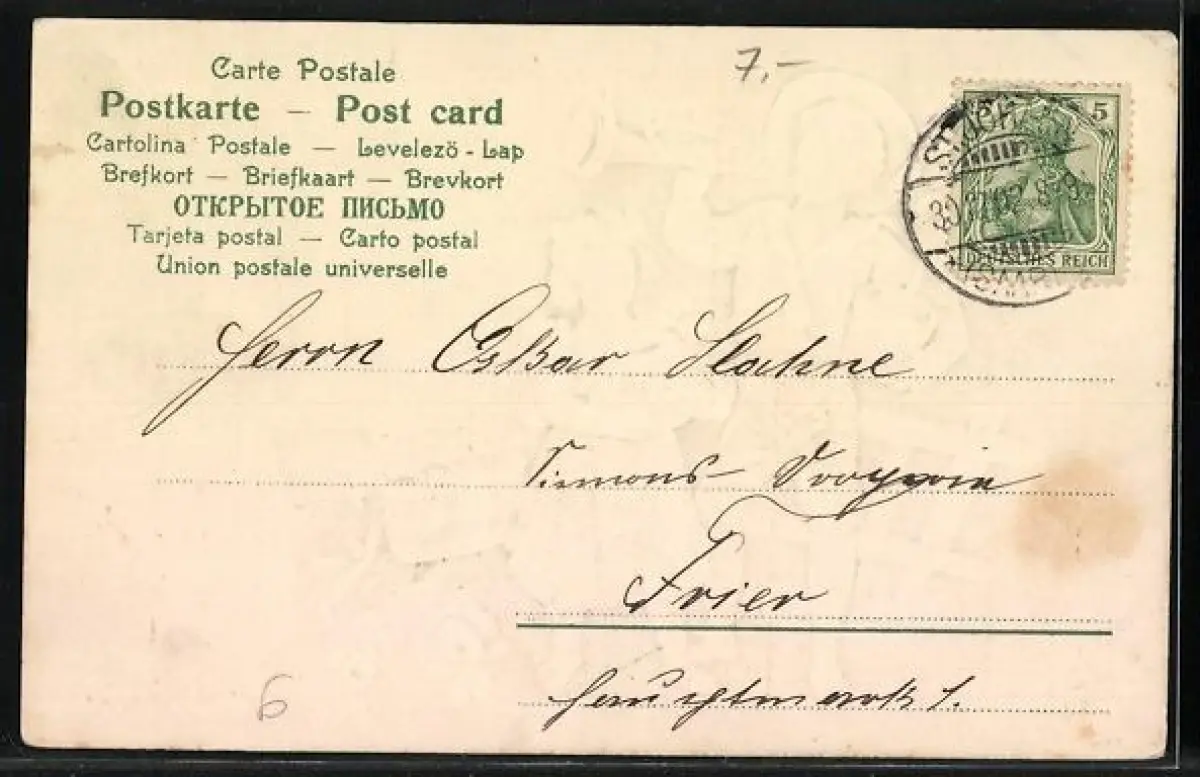 Carte Postale
Postkarte — Post card
Cartolina Postale — Levelezö - Lap
Brefkort — Briefkaart — Brevkort
ОТКРЫТОЕ ПИСЬМО
Tarjeta postal — Carto postal
Union postale universelle
7,-
5 5
DEUTSCHES REICH
Herrn Oskar
Simons
Trier
Hauptmarkt 1.
6